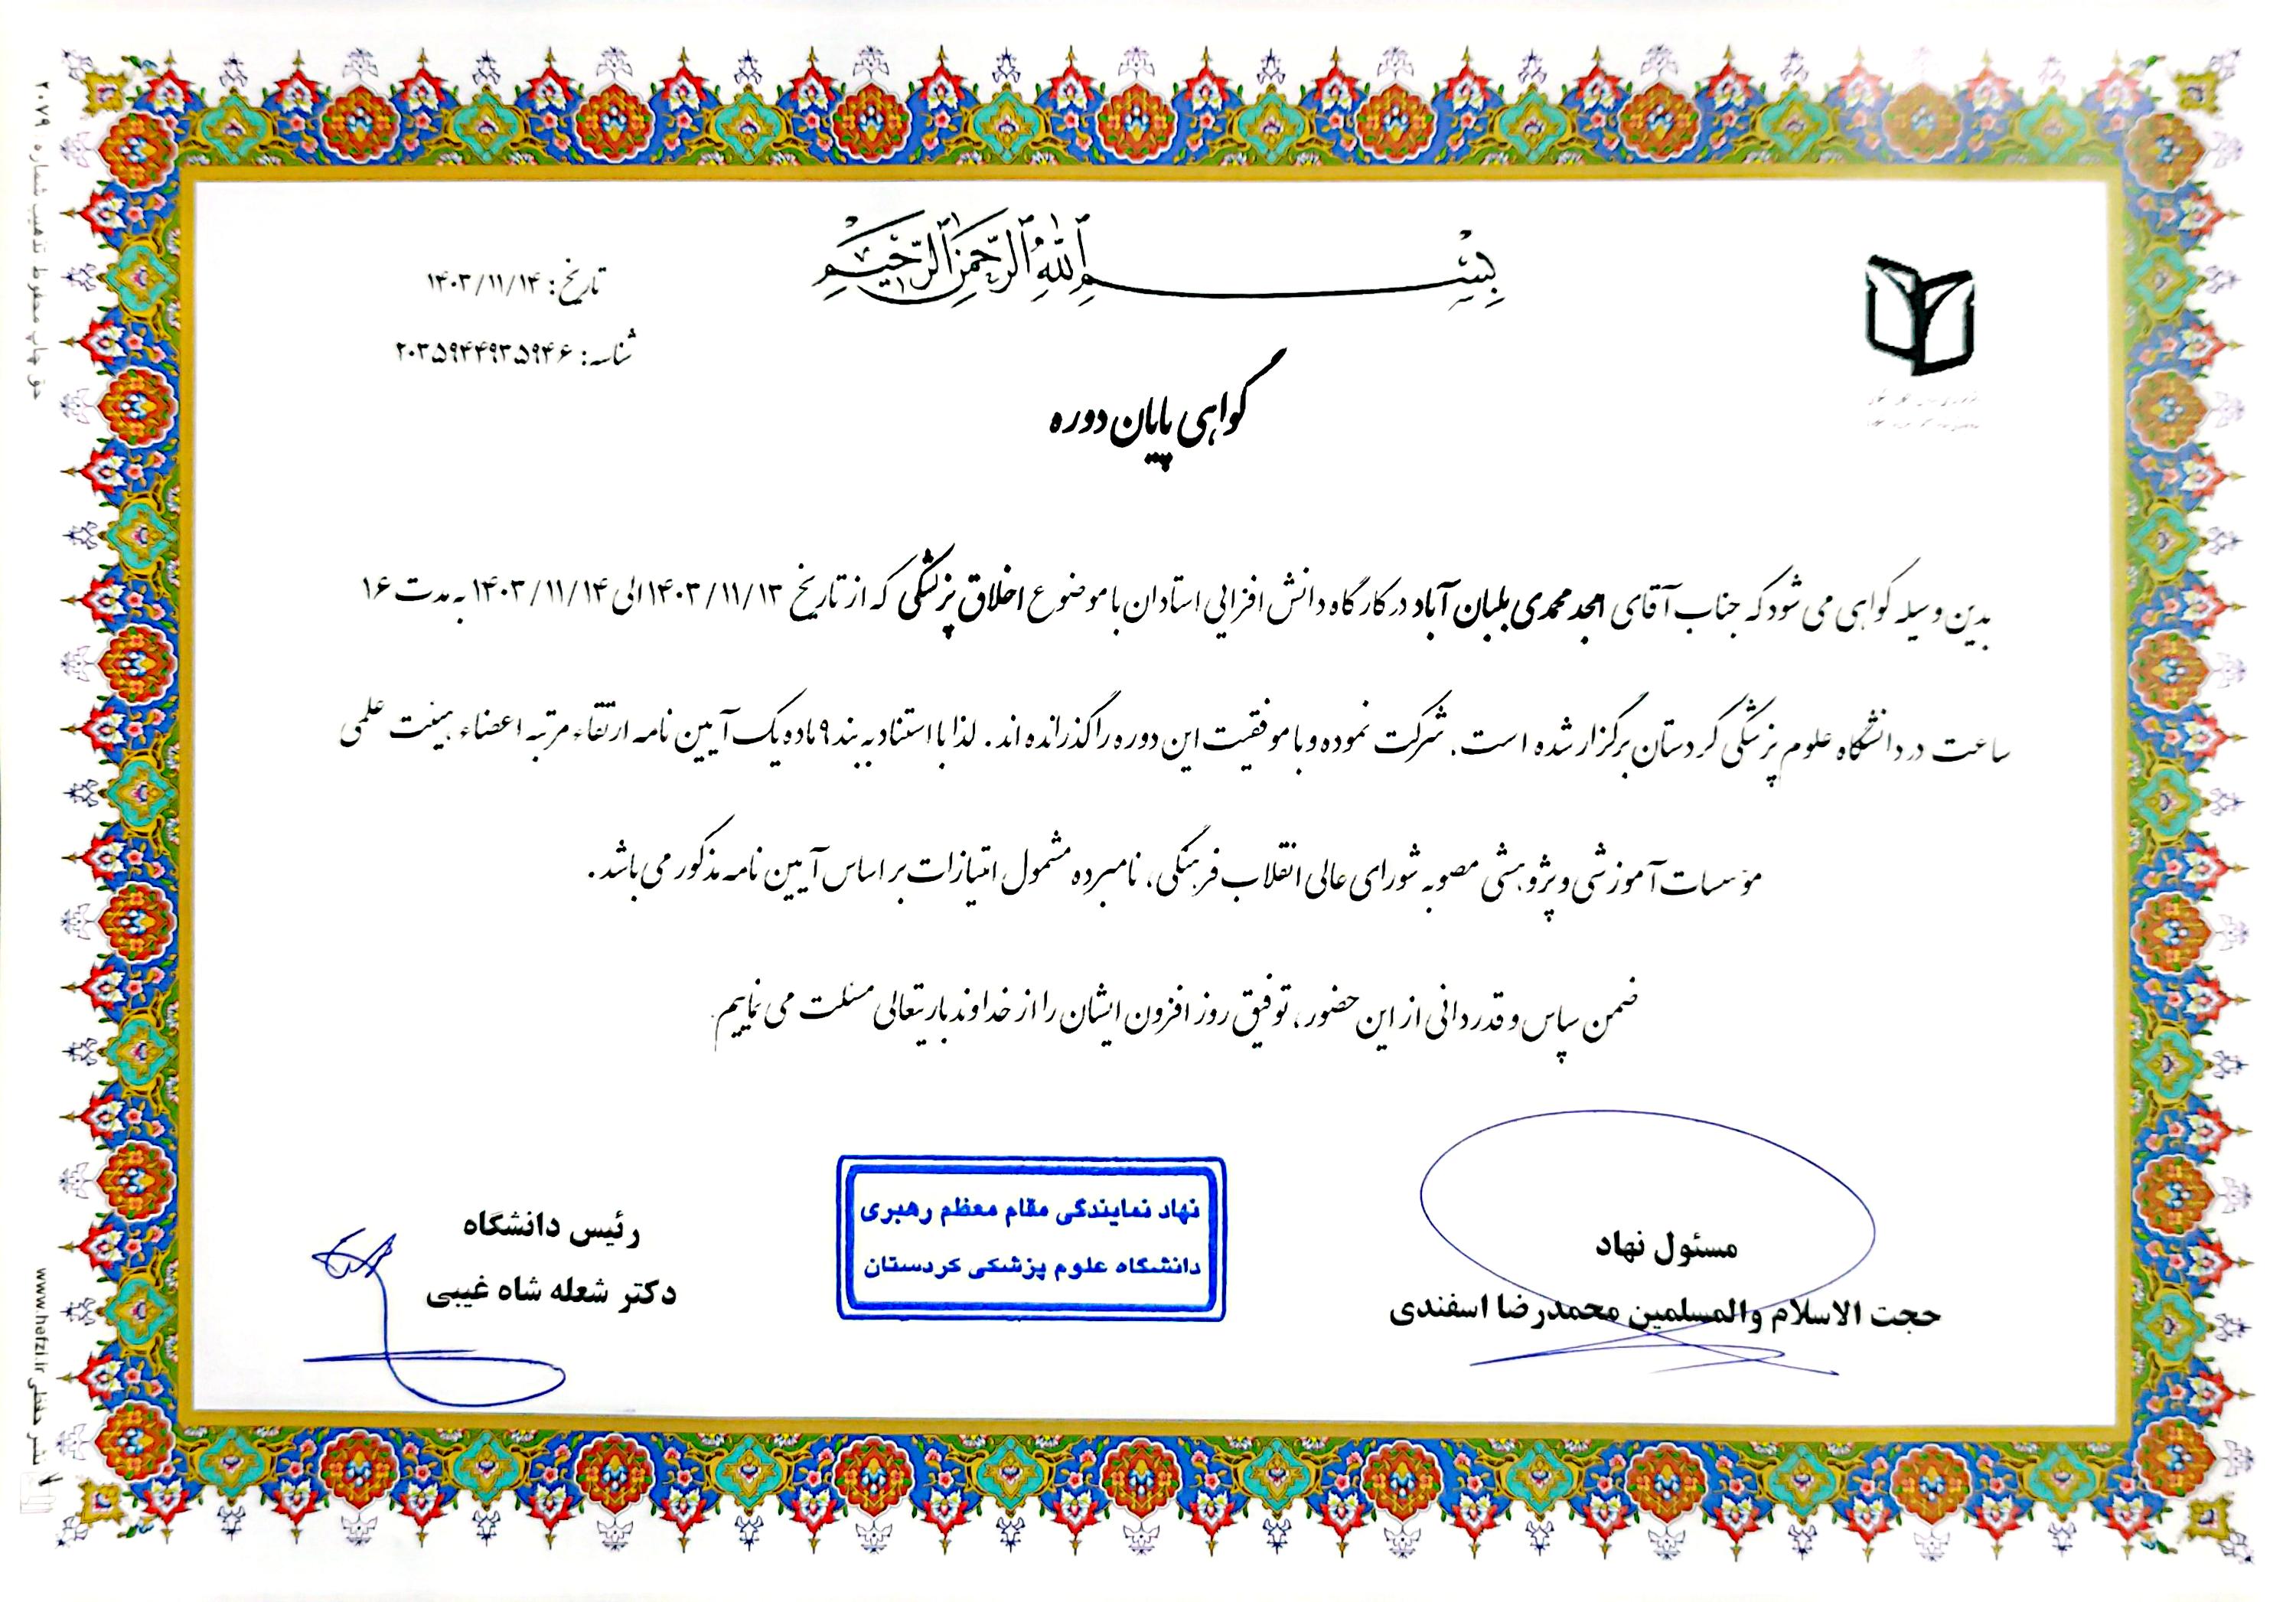 بسم الله الرحمن الرحیم
تاریخ: ۱۴۰۳/۱۱/۱۴
شناسه: ۲۰۳۵۹۴۴۹۳۵۹۴۶
گواهی پایان دوره
بدین وسیله گواهی می شود که جناب آقای امجد محمدی بلبان آباد در کارگاه دانش افزایی استادان با موضوع اخلاق پزشکی که از تاریخ ۱۴۰۳/۱۱/۱۳ الی ۱۴۰۳/۱۱/۱۴ به مدت ۱۶
ساعت در دانشگاه علوم پزشکی کردستان برگزار شده است. شرکت نموده و با موفقیت این دوره را گذرانده اند. لذا با استناد به بند ۹ ماده یک آیین نامه ارتقاء مرتبه اعضاء هیئت علمی
موسسات آموزشی و پژوهشی مصوبه شورای عالی انقلاب فرهنگی، نامبرده مشمول امتیازات بر اساس آیین نامه مذکور می باشد.
ضمن سپاس و قدردانی از این حضور، توفیق روز افزون ایشان را از خداوند باریتعالی مسئلت می نماییم
مسئول نهاد
حجت الاسلام والمسلمین محمدرضا اسفندی
نهاد نمایندگی مقام معظم رهبری
دانشگاه علوم پزشکی کردستان
رئیس دانشگاه
دکتر شعله شاه غیبی
حق چاپ محفوظ تذهیب شماره ۲۰۷۹
نشر حفظی www.hefzi.ir